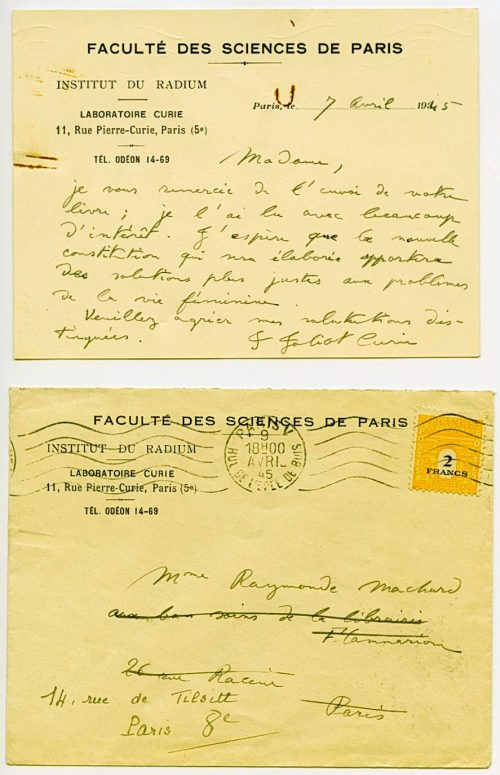 FACULTÉ DES SCIENCES DE PARIS
INSTITUT DU RADIUM
LABORATOIRE CURIE
11, Rue Pierre-Curie, Paris (5e)
TÉL. ODÉON 14-69
Paris, le 7 Avril 1945
Madame,
je vous remercie de l'envoi de votre
livre ; je l'ai lu avec beaucoup
d'intérêt. J'espère que la nouvelle
constitution qui sera élaborée apportera
des solutions plus justes aux problèmes
de la vie féminine.
Veuillez agréer mes salutations dis-
tinguées.
Joliot Curie
FACULTÉ DES SCIENCES DE PARIS
INSTITUT DU RADIUM
LABORATOIRE CURIE
11, Rue Pierre-Curie, Paris (5e)
TÉL. ODÉON 14-69
PARIS V
9
18H00
AVRIL
45
RUE DE L'EPEE DE BOIS
2
FRANCS
Mme Raymonde Machard
aux bon soins de la librairie
Flammarion
26 rue Racine
14, rue de Tilsitt
Paris
Paris 8e